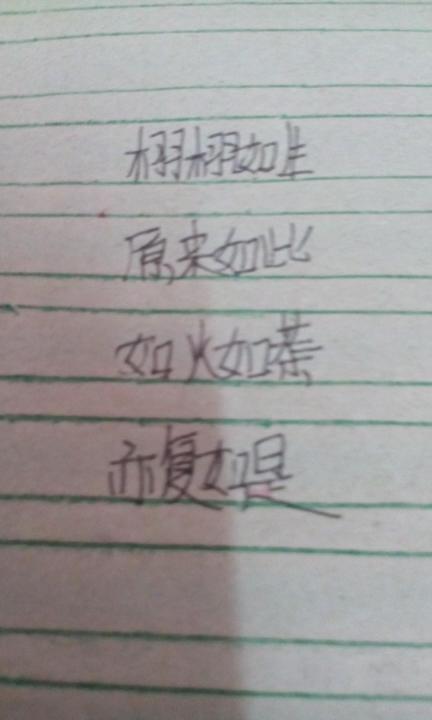 栩栩如生
原来如此
如火如荼
亦复如是